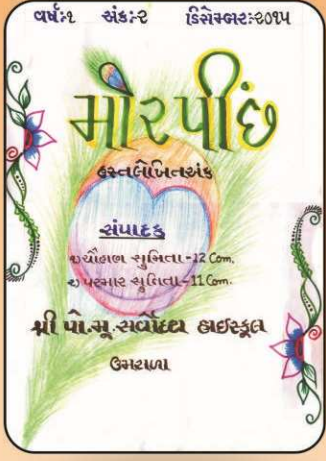 વર્ષ:૧ અંક:૨ ડિસેમ્બર:૨૦૧૫
મોરપીંછ
હસ્તલેખિતઅંક
સંપાદક
૧) ચૌહાણ સુમિતા-12 Com.
૨) પરમાર સુમિતા-11 Com.
શ્રી પી.મૂ.સર્વોદય હાઈસ્કૂલ
ઉમરાળા